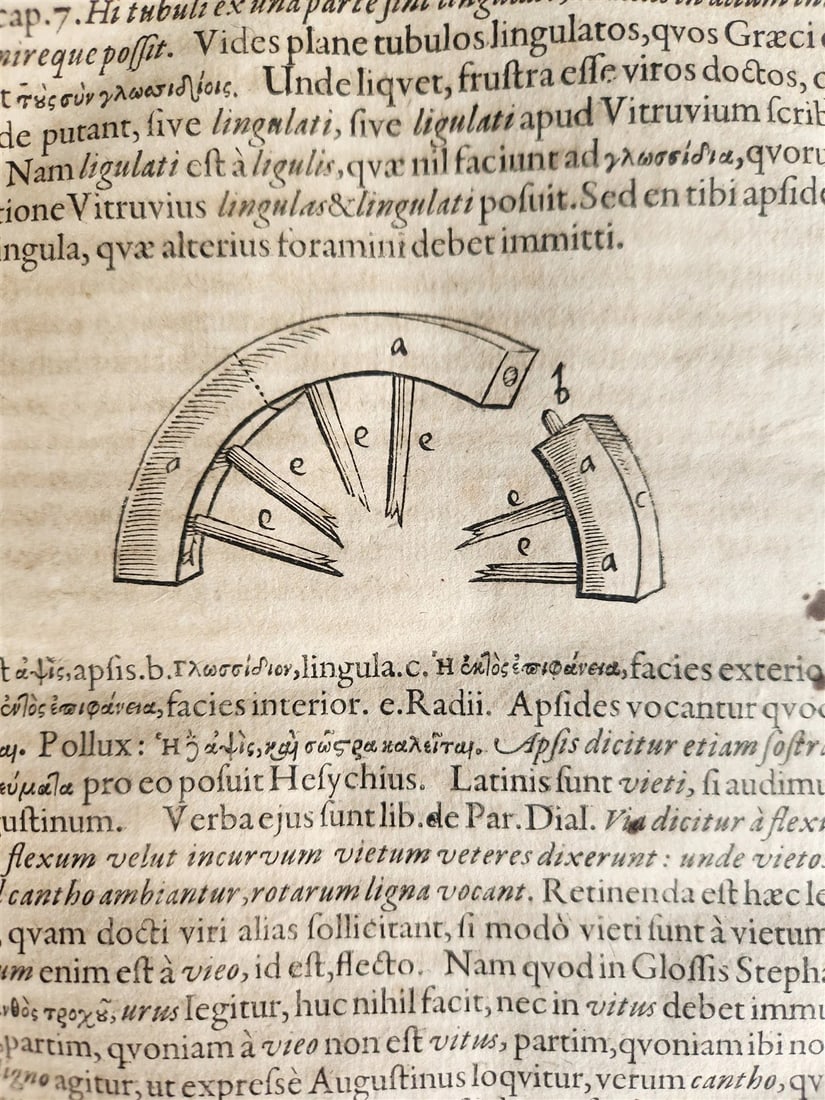 cap.7. Hi tubuli ex una parte sint
nireque poſſit. Vides plane tubulos lingulatos, qvos Græci
t τȣ̀ς σὺν γλωσσιδίοις. Unde liqvet, fruſtra eſſe viros doctos,
de putant, ſive lingulati, ſive ligulati apud Vitruvium ſcrib
Nam ligulati eſt à ligulis, qvæ nil faciunt ad γλωσσίδια, qvoru
tione Vitruvius lingulas & lingulati poſuit. Sed en tibi apſide
ingula, qvæ alterius foramini debet immitti.
a
b
a
e
e
a
c
e
e
e
e
a
d
t ἁψὶς, apſis. b. Γλωσσίδιον, lingula. c. Ἡ ἐκτὸς ἐπιφάνεια, facies exterio
ἐντὸς ἐπιφάνεια, facies interior. e. Radii. Apſides vocantur qvo
αι. Pollux: Ἡ δὲ ἁψὶς, καὶ σῶτρα καλεῖται. Apſis dicitur etiam ſoſtr
εύματα pro eo poſuit Heſychius. Latinis ſunt vieti, ſi audimu
uſtinum. Verba ejus ſunt lib. de Par. Dial. Via dicitur à flexu
flexum velut incurvum vietum veteres dixerunt: unde vieto
cantho ambiantur, rotarum ligna vocant. Retinenda eſt hæc le
, qvam docti viri alias ſollicitant, ſi modò vieti ſunt à vietum
um enim eſt à vieo, id eſt, flecto. Nam qvod in Gloſſis Stepha
νθὸς τροχȣ͂, urus legitur, huc nihil facit, nec in vitus debet immu
partim, qvoniam à vieo non eſt vitus, partim, qvoniam ibi no
igno agitur, ut expreſsè Auguſtinus loqvitur, verum cantho, qv